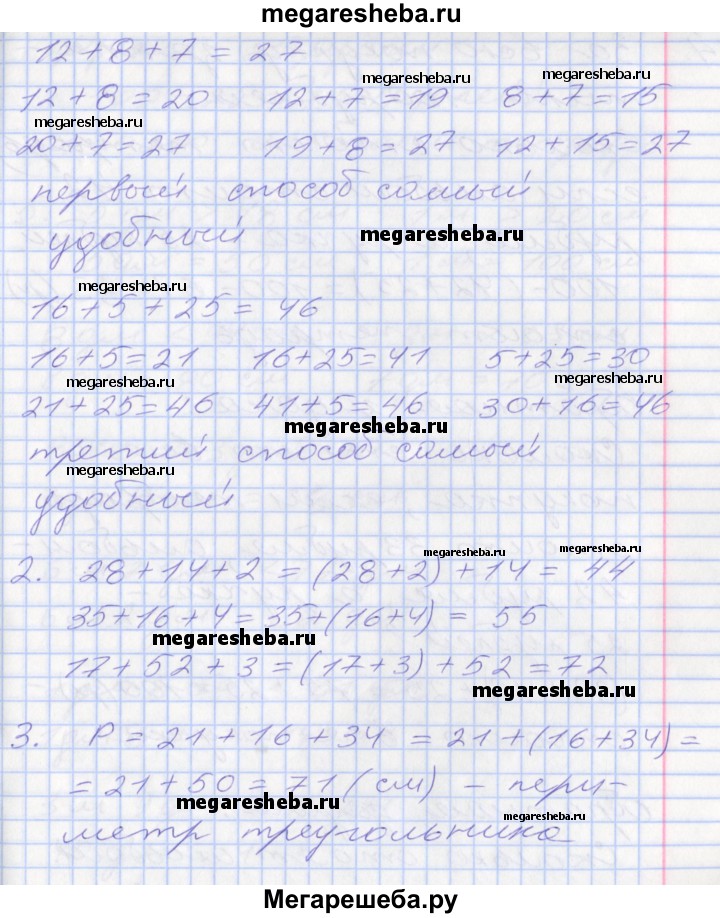 megaresheba.ru
12+8+7 = 27
megaresheba.ru megaresheba.ru
12+8=20 12+7=19 8+7=15
megaresheba.ru
20+7=27 19+8=27 12+15=27
первый способ самый
удобный megaresheba.ru
megaresheba.ru
16+5+25= 46
16+5=21 16+25=41 5+25=30
megaresheba.ru megaresheba.ru
21+25=46 41+5=46 30+16=46
megaresheba.ru
третий способ самый
megaresheba.ru
удобный
megaresheba.ru megaresheba.ru
2. 28+14+2 = (28+2)+14= 44
35+16+4=35+(16+4)= 55
megaresheba.ru
17+52+3=(17+3)+52=72
megaresheba.ru
3. P=21+16+34 =21+(16+34)=
=21+50=71(см) – пери-
megaresheba.ru megaresheba.ru
метр треугольника
Мегарешеба.ру